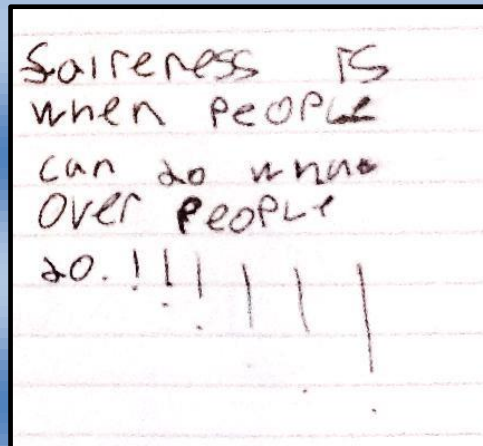 Faireness is
when people
can do what
Over people
do.!!!!!!